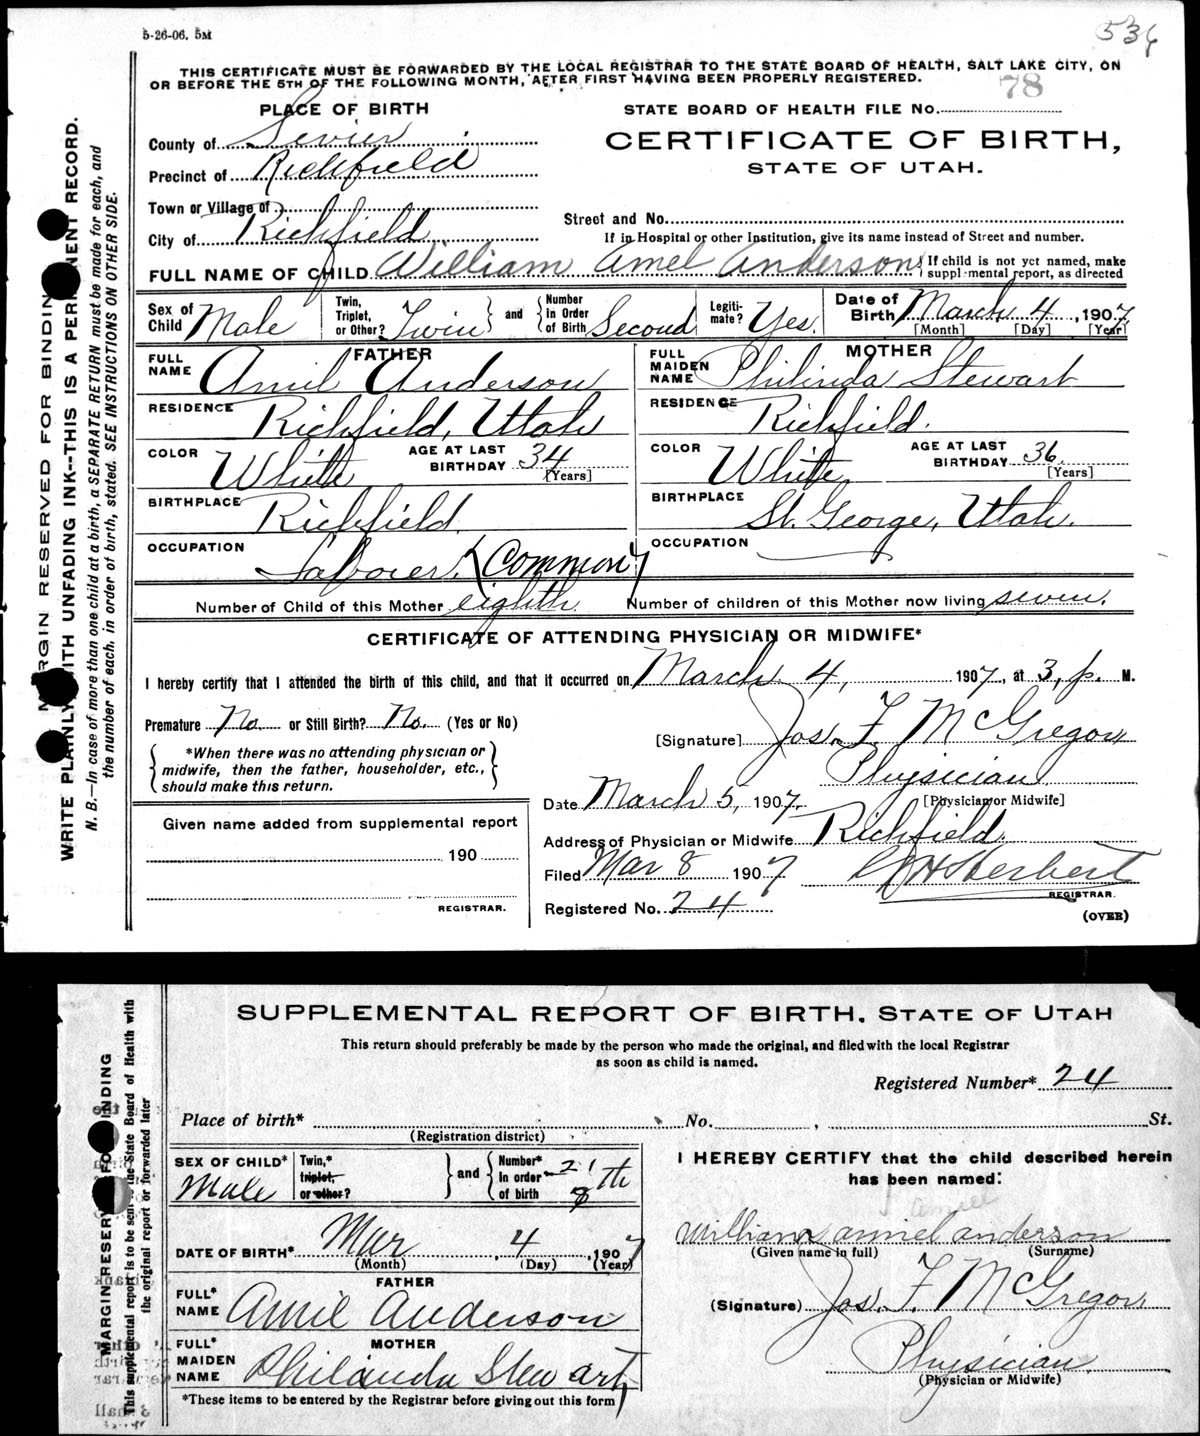 5-26-06. 5M
536
THIS CERTIFICATE MUST BE FORWARDED BY THE LOCAL REGISTRAR TO THE STATE BOARD OF HEALTH, SALT LAKE CITY, ON
OR BEFORE THE 5TH OF THE FOLLOWING MONTH, AFTER FIRST HAVING BEEN PROPERLY REGISTERED.
78
PLACE OF BIRTH
STATE BOARD OF HEALTH FILE No.
County of Sevier
CERTIFICATE OF BIRTH,
Precinct of Richfield
STATE OF UTAH.
Town or Village of
Street and No.
City of Richfield
If in Hospital or other Institution, give its name instead of Street and number.
FULL NAME OF CHILD William Amel Anderson
If child is not yet named, make
supplemental report, as directed
Sex of Child Male
Twin, Triplet, or Other? Twin and Number in Order of Birth Second
Legitimate? Yes.
Date of Birth March 4, 1907
[Month] [Day] [Year]
FATHER
FULL NAME Amil Anderson
RESIDENCE Richfield, Utah
COLOR White AGE AT LAST BIRTHDAY 34 [Years]
BIRTHPLACE Richfield
OCCUPATION Laborer. (Common)
MOTHER
FULL MAIDEN NAME Philinda Stewart
RESIDENCE Richfield.
COLOR White AGE AT LAST BIRTHDAY 36 [Years]
BIRTHPLACE St. George, Utah.
OCCUPATION
Number of Child of this Mother eighth Number of children of this Mother now living seven.
CERTIFICATE OF ATTENDING PHYSICIAN OR MIDWIFE*
I hereby certify that I attended the birth of this child, and that it occurred on March 4, 1907, at 3, p. M.
Premature No. or Still Birth? No. (Yes or No)
[Signature] Jos. F. McGregor
*When there was no attending physician or
midwife, then the father, householder, etc.,
should make this return.
Physician
[Physician or Midwife]
Date March 5, 1907.
Given name added from supplemental report
190
REGISTRAR.
Address of Physician or Midwife Richfield.
Filed Mar 8 1907 Herbert
REGISTRAR.
Registered No. 24
(OVER)
MARGIN RESERVED FOR BINDING
WRITE PLAINLY WITH UNFADING INK--THIS IS A PERMANENT RECORD.
N. B.—In case of more than one child at a birth, a SEPARATE RETURN must be made for each, and
the number of each, in order of birth, stated. SEE INSTRUCTIONS ON OTHER SIDE.
SUPPLEMENTAL REPORT OF BIRTH, STATE OF UTAH
This return should preferably be made by the person who made the original, and filed with the local Registrar
as soon as child is named.
Registered Number* 24
Place of birth* No. , St.
(Registration district)
SEX OF CHILD* Male
Twin,* triplet, or other? and Number* in order of birth 2' 8th
DATE OF BIRTH* Mar 4, 1907
(Month) (Day) (Year)
FATHER
FULL* NAME Amil Anderson
MOTHER
FULL* MAIDEN NAME Philinda Stewart
*These items to be entered by the Registrar before giving out this form
I HEREBY CERTIFY that the child described herein
has been named:
Amiel
William amiel anderson
(Given name in full) (Surname)
(Signature) Jos. F. McGregor
Physician
(Physician or Midwife)
MARGIN RESERVED FOR BINDING
This supplemental report is to be sent to the State Board of Health with
the original report or forwarded later